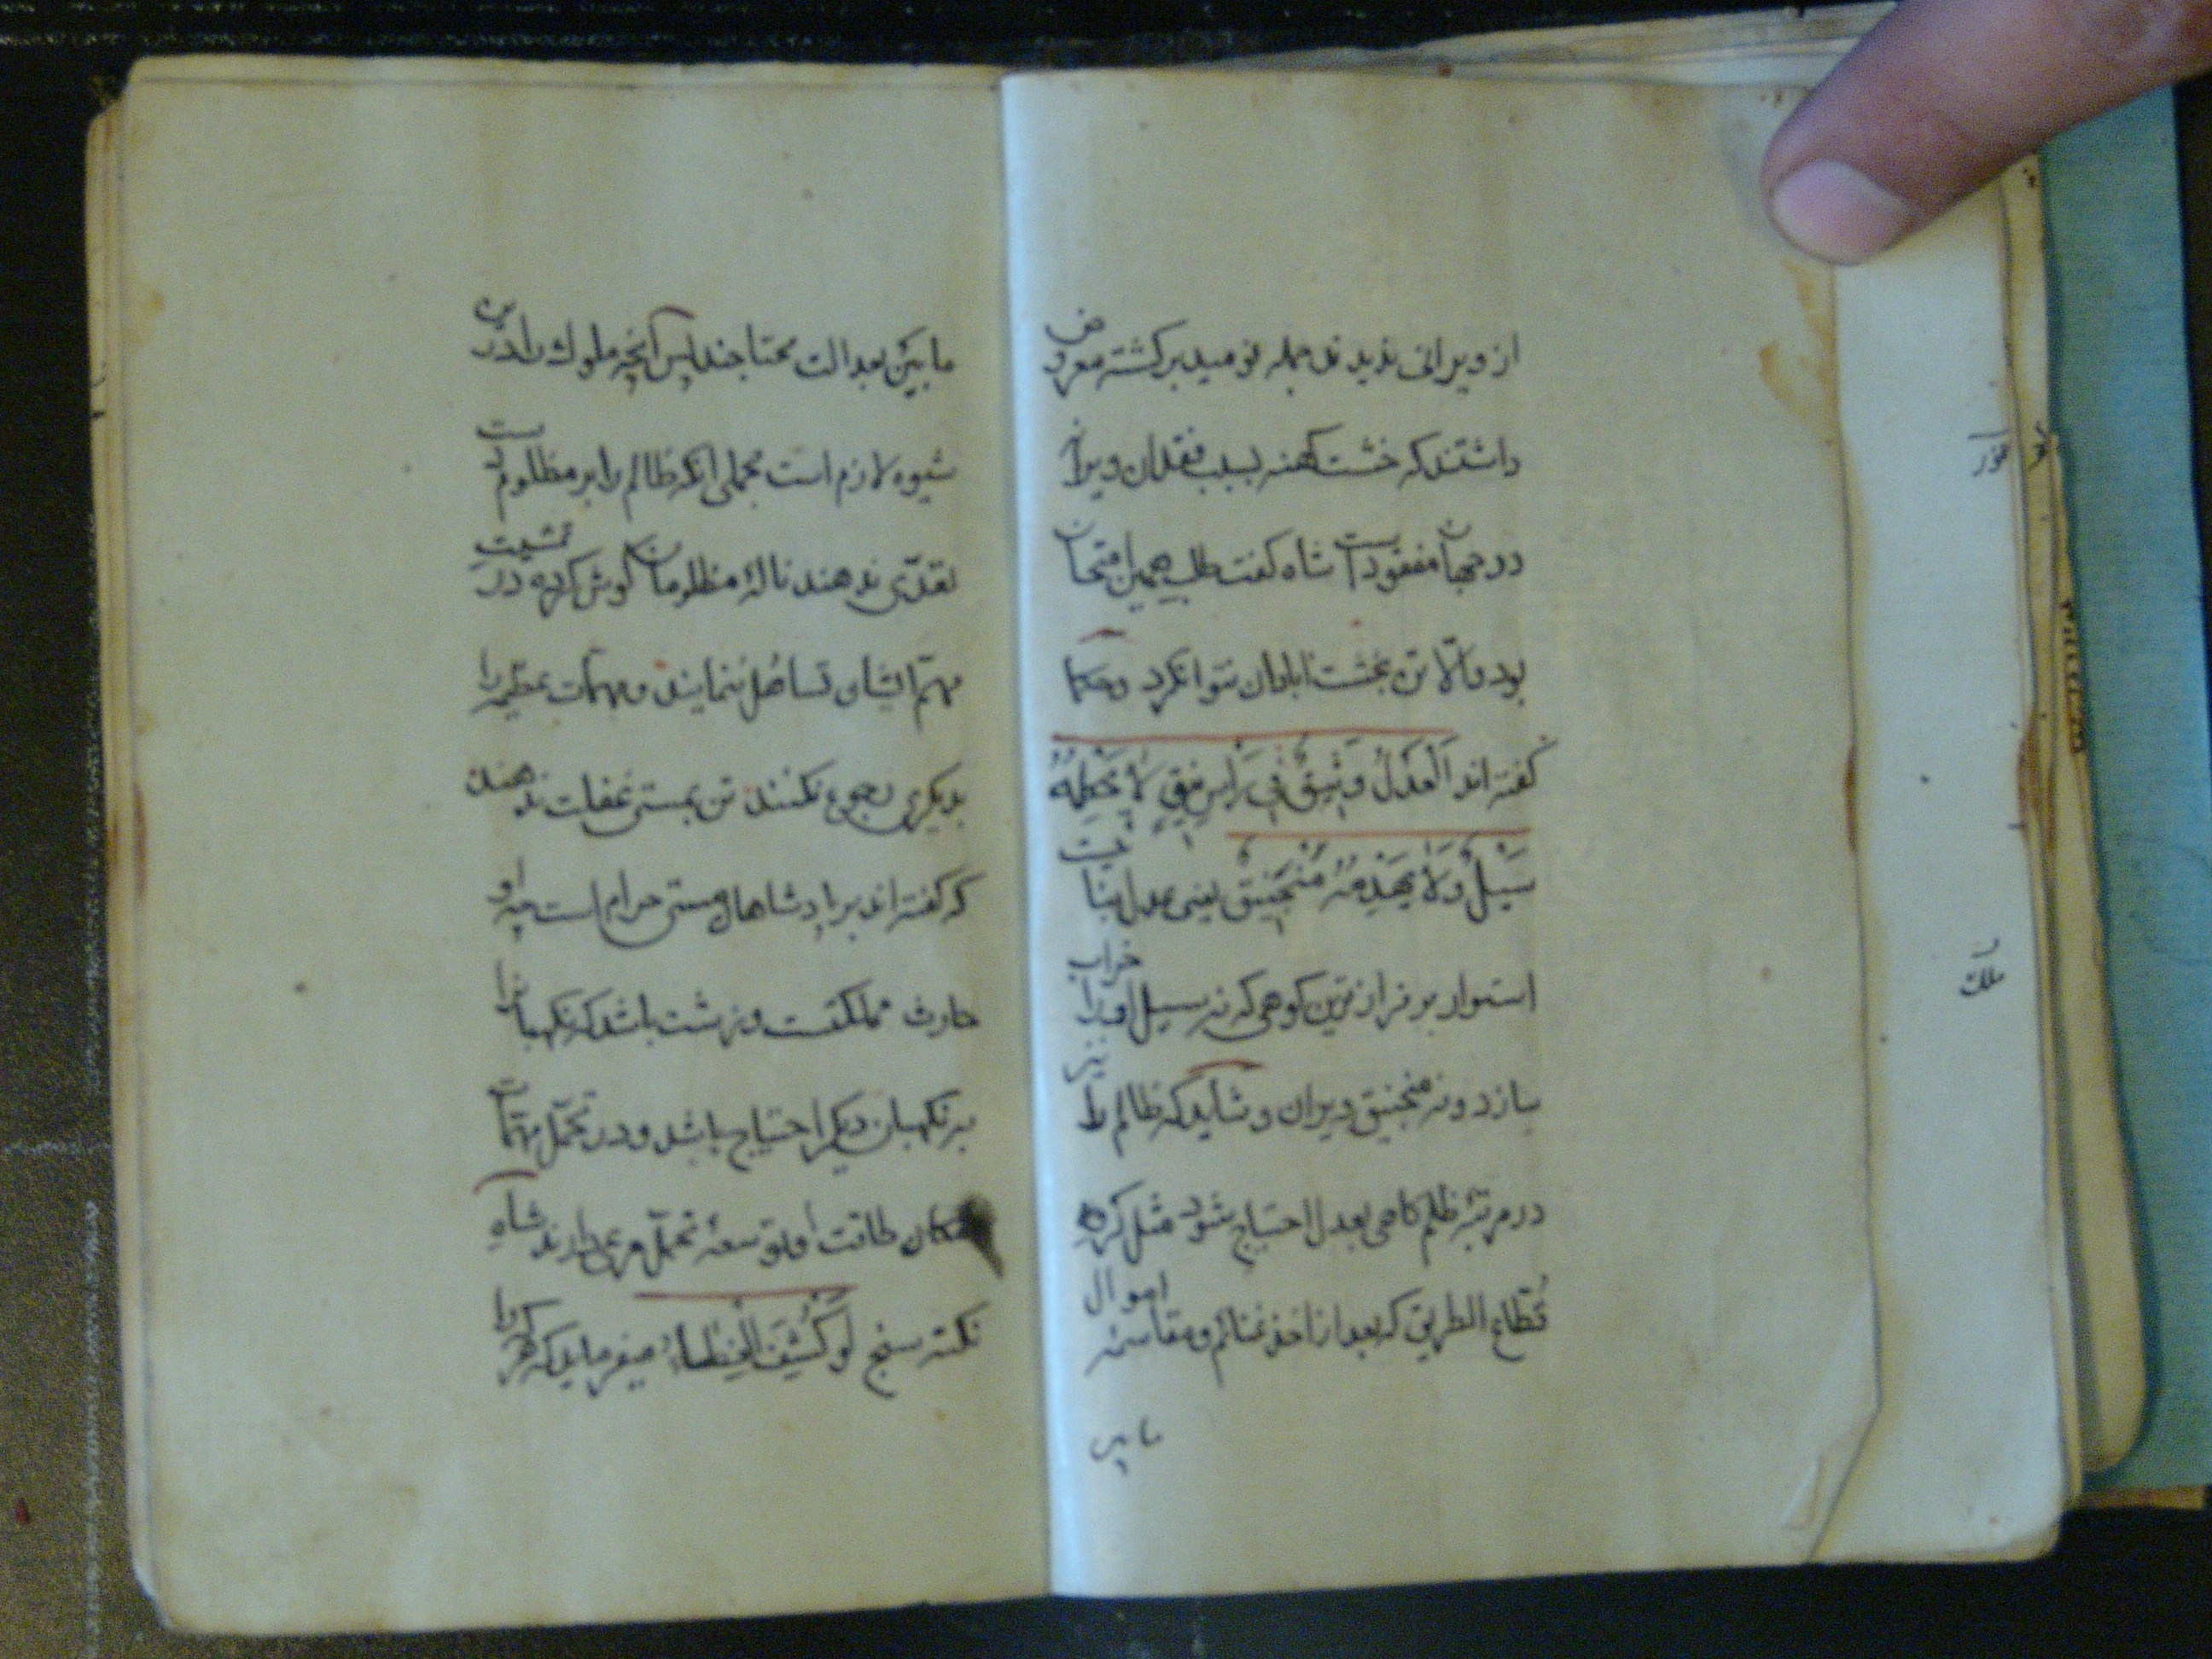 از ویرانی ندیدند جمله نومید برگشته معروض
داشتند که خشت کهنه بسبب فقدان ویرانه
در جهان مفقود است شاه گفت مطلب همین امتحان
بود والا ترا بخشت آبادان نتوان کرد و حکما
گفته اند اَلْعَدْلُ وَثیقٌ فی رَأسِ نیقٍ لا یَحْطِمُهُ
سَیْلٌ وَلا یَهْدِمُهُ مَنْجَنیقٌ یعنی عدل بنائیست
استوار بر فراز ترین کوهی که نه سیل او را خراب
سازد و نه منجنیق ویران و شاید که ظالم را نیز
در مرتبهٔ ظلم گاهی بعدل احتیاج شود مثل گروه
قطاع الطریق که بعد از اخذ غنائم و مقاسمه اموال
مابین
مابین بعدالت محتاجند پس آنچه ملوک را در این
شیوه لازم است مجملی آنکه ظالم را بر مظلوم دست
تعدّی ندهند نالهٔ مظلومان گوش کرده در تمشیت
مهم ایشان تساهل ننمایند و مهمات عظیمه را
بدیگری رجوع نکنند تن بمستی غفلت ندهند
که گفته اند بر پادشاهان مستی حرام است چه او
حارث مملکتست و زشت باشد که نگهبانرا
بر نگهبان دیگر احتیاج باشد و در تحمّل مهمّات
طاقت تحمّل مرعی دارند شاه
نکته سنج لَوْ کُشِفَ الْغِطاءُ میفرماید که هر کرا